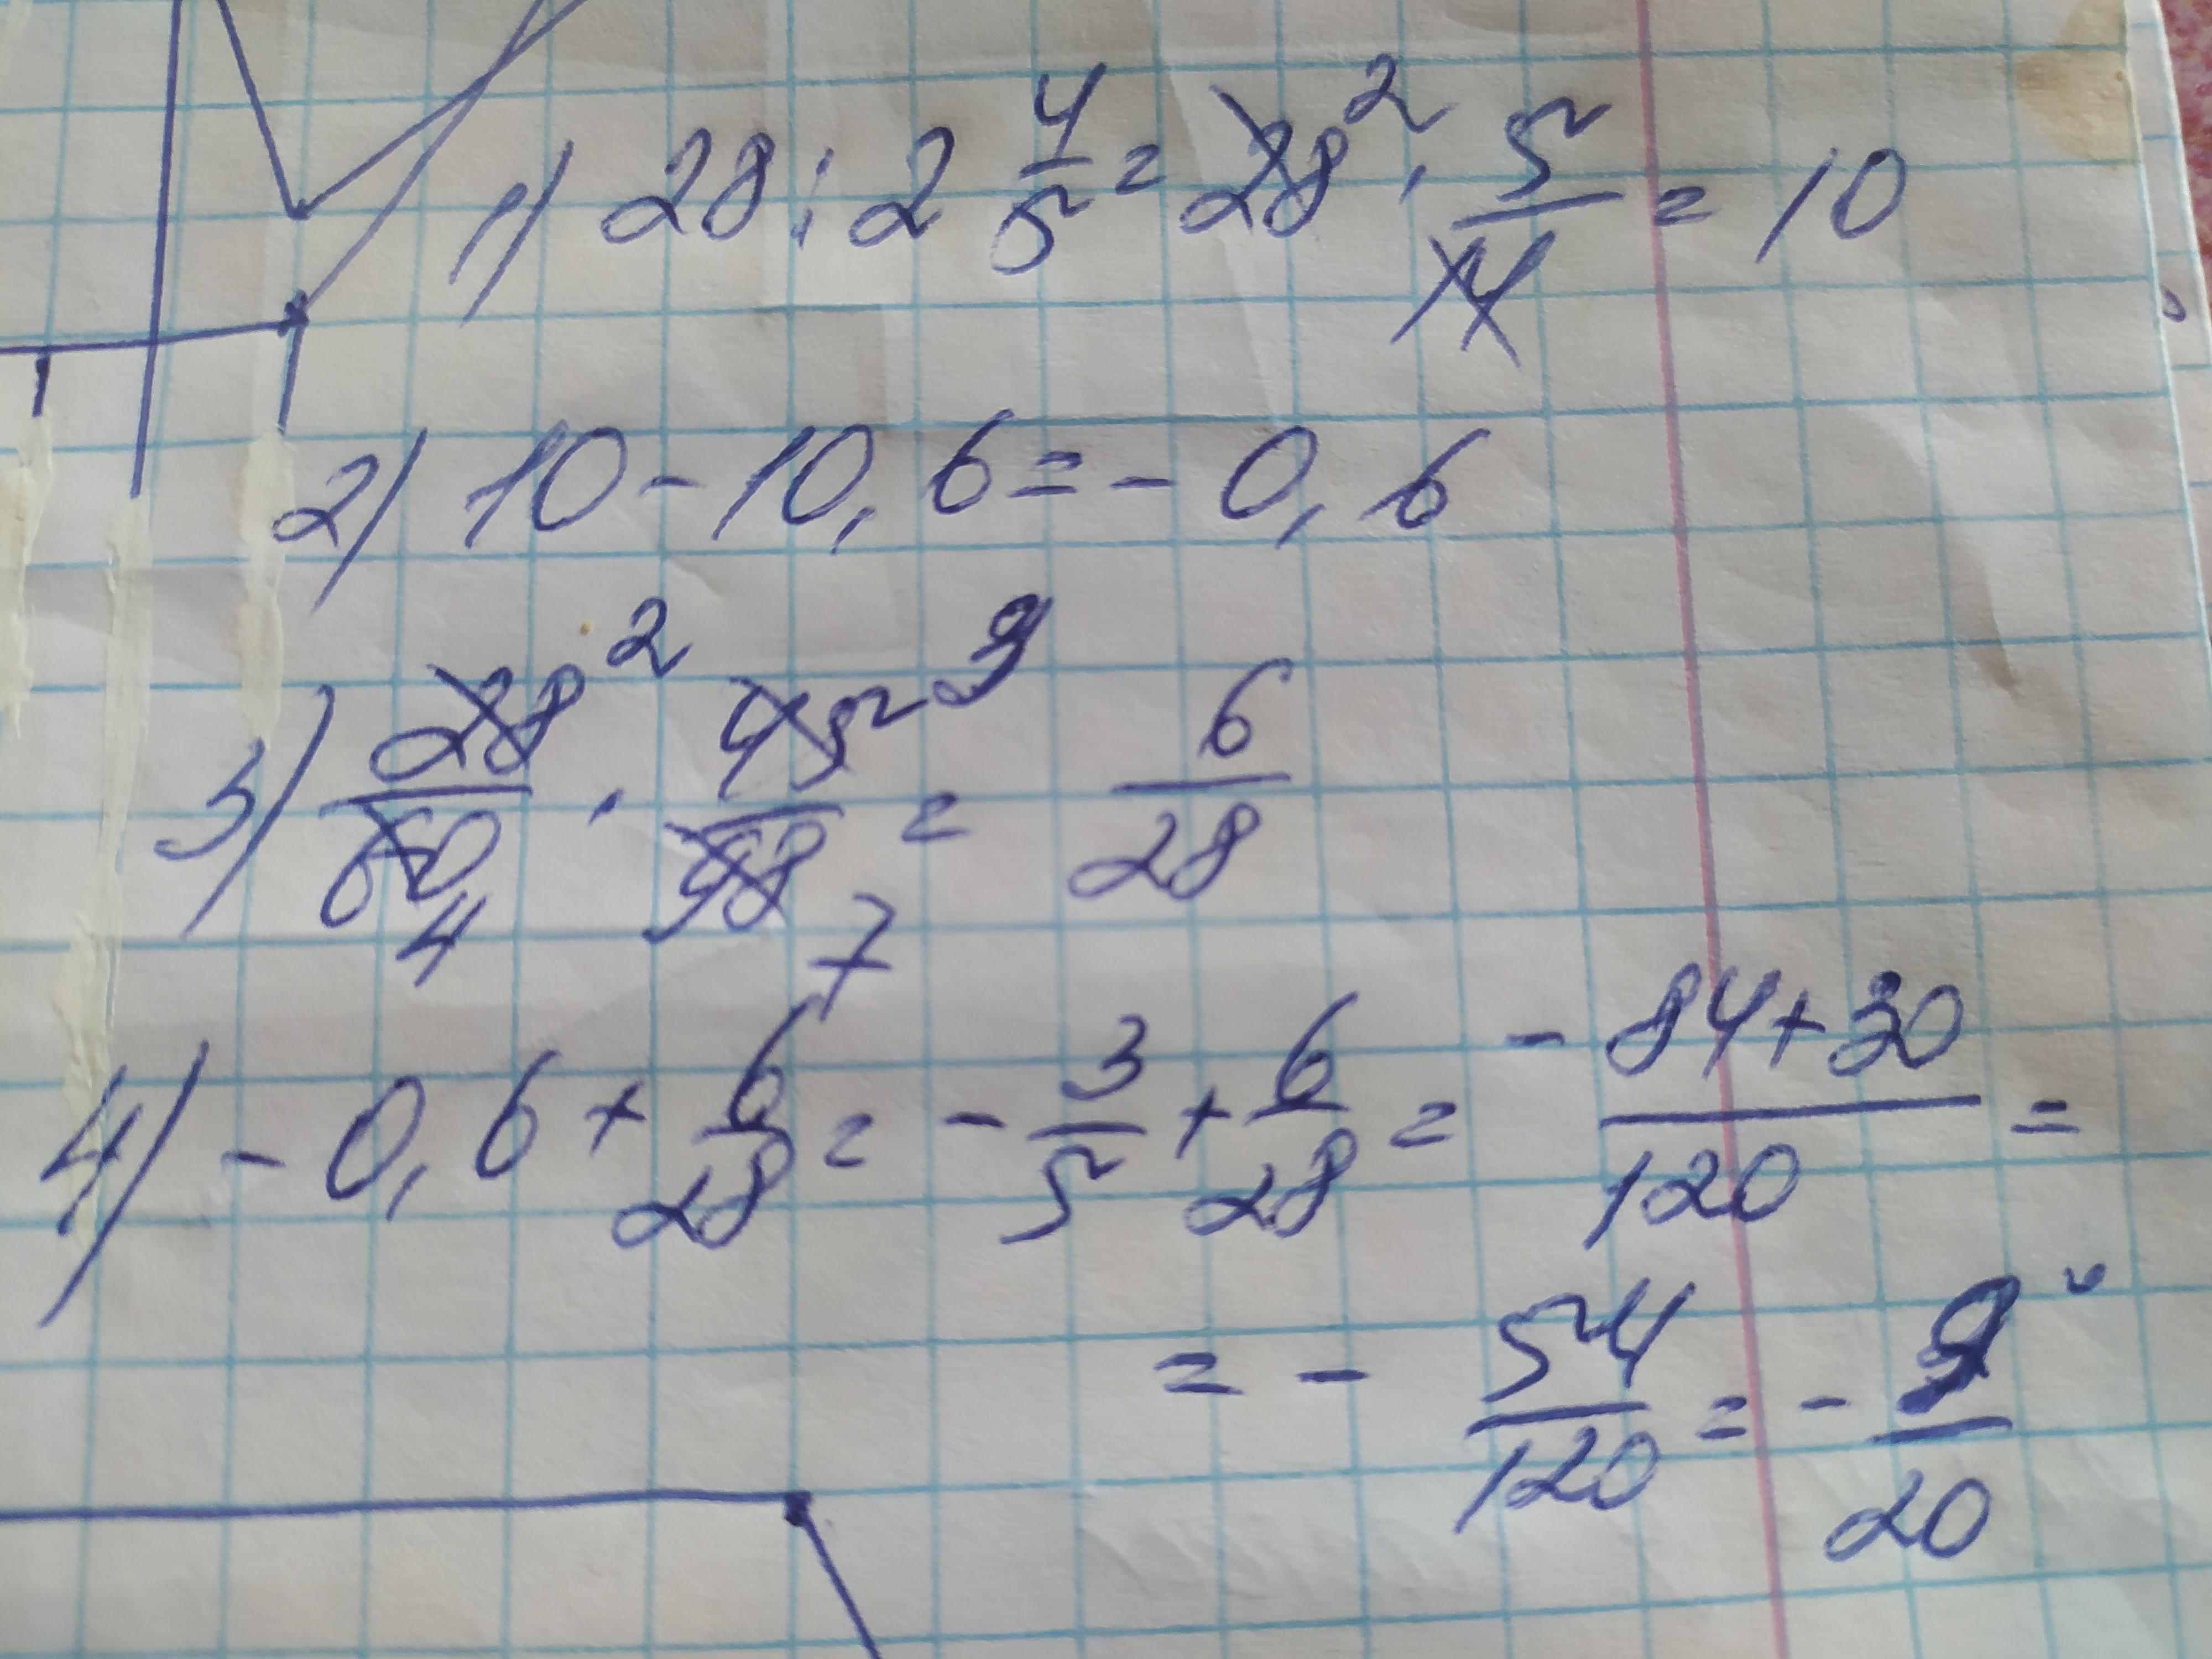 1) 28 : 2 4/5 = 28 ² · 5/14 = 10
2) 10 - 10,6 = - 0,6
3) 28 ²/60 4 · 45 3/98 7 = 6/28
4) - 0,6 + 6/28 = - 3/5 + 6/28 = - 84+30/120 =
= - 54/120 = - 9/20